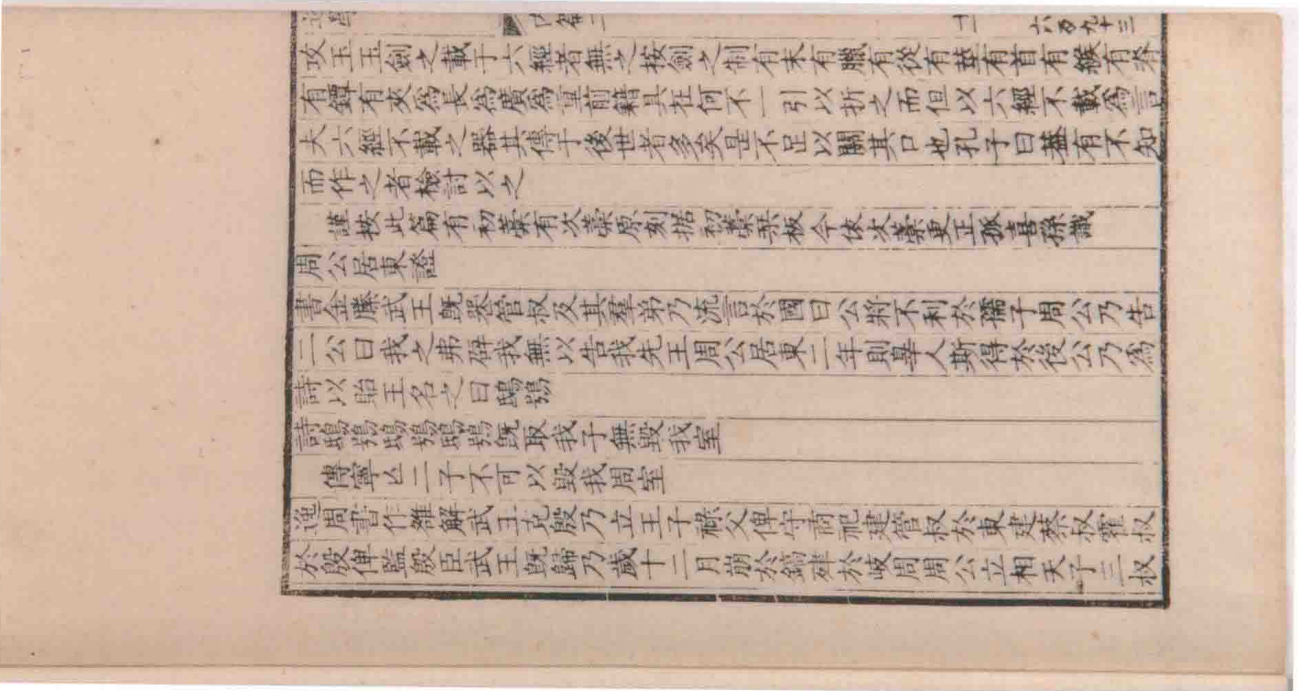 攻玉玉劍之載于六經者無之按劍之制有末有臘有從有莖有首有緱有脊
有鐔有夾爲長爲廣爲重前籍具在何不一引以折之而但以六經不載爲言
夫六經不載之器其傳于後世者多矣是不足以關其口也孔子曰蓋有不知
而作之者檢討以之
謹按此篇有初藁有次藁原刻據初藁栞板今依次藁更正孤喜孫識
周公居東證
書金縢武王旣喪管叔及其羣弟乃流言於國曰公將不利於孺子周公乃告
二公曰我之弗辟我無以告我先王周公居東二年則辠人斯得於後公乃爲
詩以貽王名之曰鴟鴞
詩鴟鴞鴟鴞鴟鴞旣取我子無毀我室
傳寧亾二子不可以毀我周室
逸周書作雒解武王克殷乃立王子祿父俾守商祀建管叔於東建蔡叔霍叔
於殷俾監殷臣武王旣歸乃歲十二月崩於鎬肂於岐周周公立相天子三叔